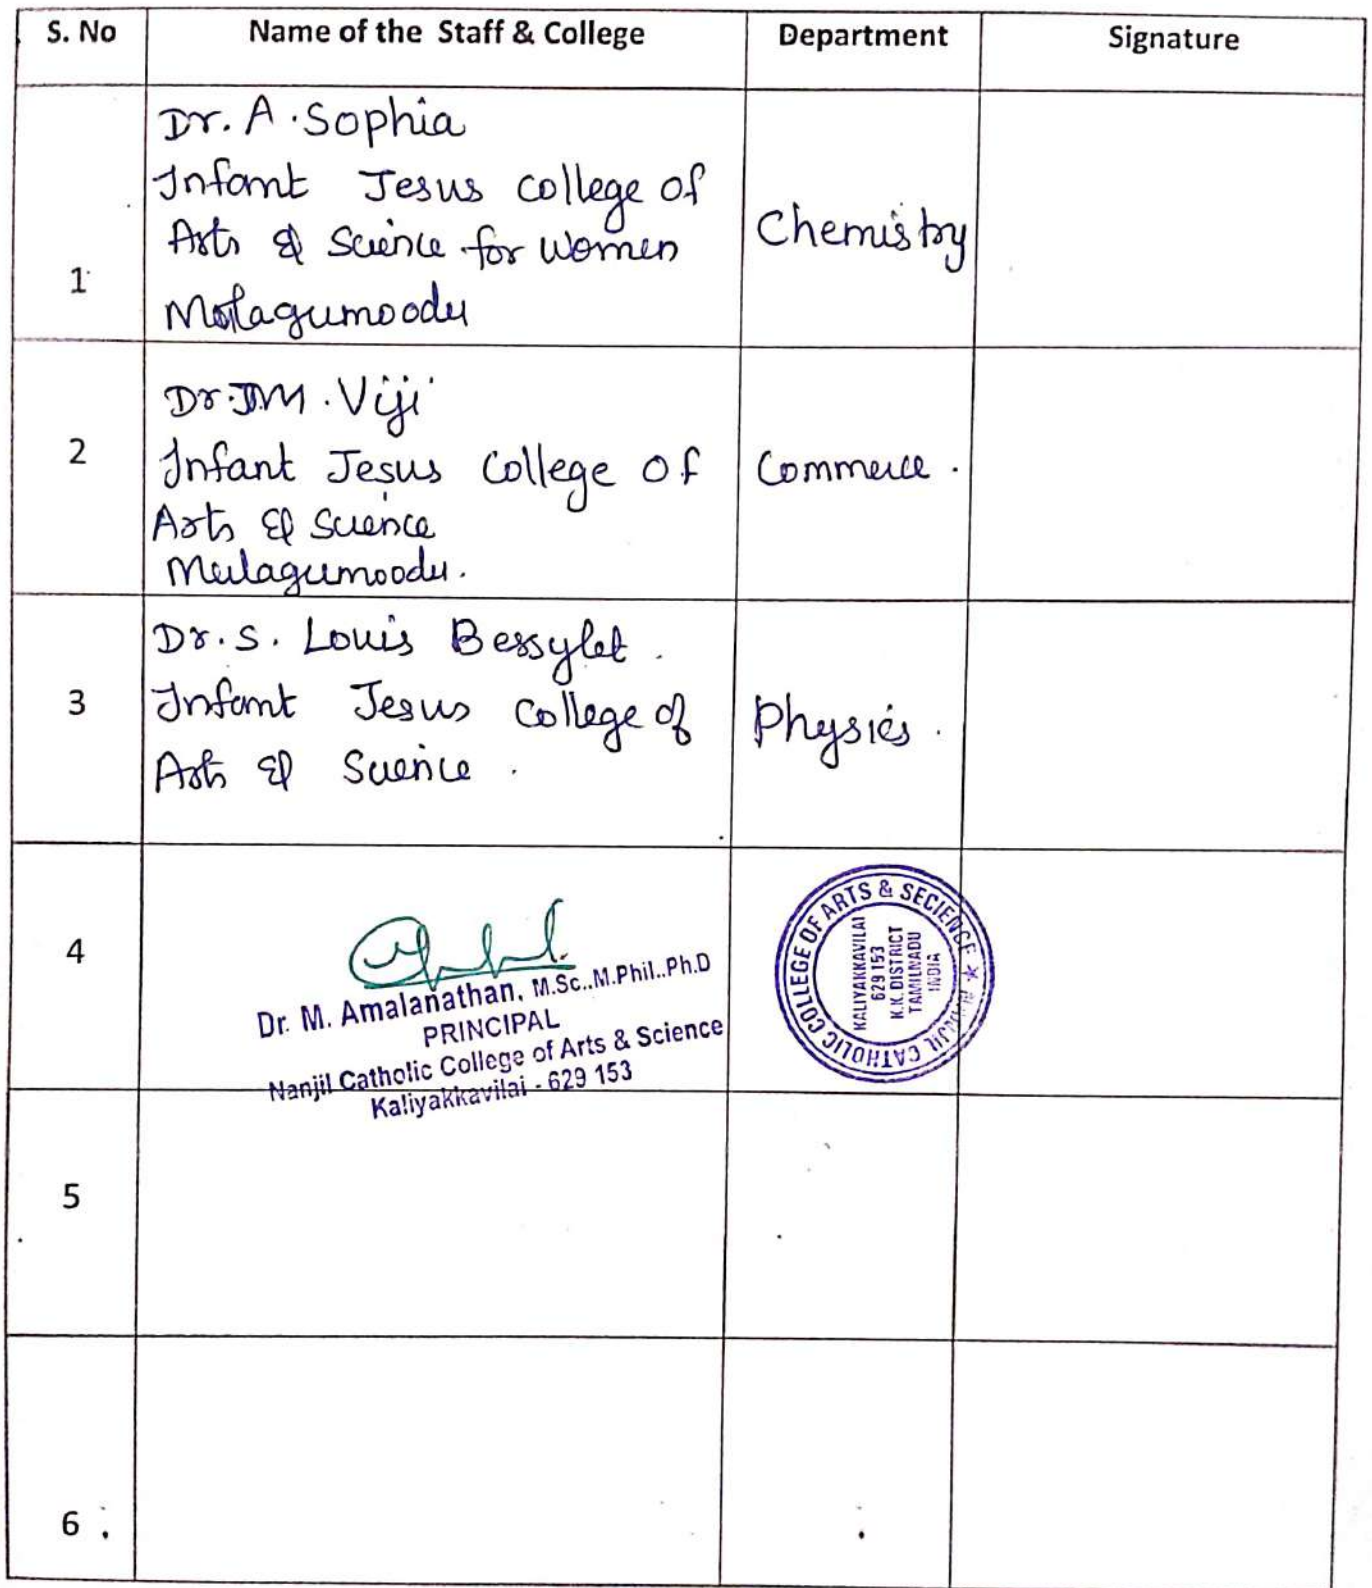 S. No Name of the Staff & College Department Signature
1
Dr. A. Sophia
Infant Jesus college of
Arts & Science for Women
Molagumoodu
Chemistry
2
Dr. J.M. Viji
Infant Jesus College of
Arts & Science
Mulagumoodu.
Commerce.
3
Dr. S. Louis Bessylet.
Infant Jesus College of
Arts & Science.
Physics.
4
Dr. M. Amalanathan, M.Sc.,M.Phil.,Ph.D
PRINCIPAL
Nanjil Catholic College of Arts & Science
Kaliyakkavilai - 629 153
NANJIL CATHOLIC COLLEGE OF ARTS & SECIENCE ★
KALIYAKKAVILAI
629 153
K.K. DISTRICT
TAMILNADU
INDIA
5
6